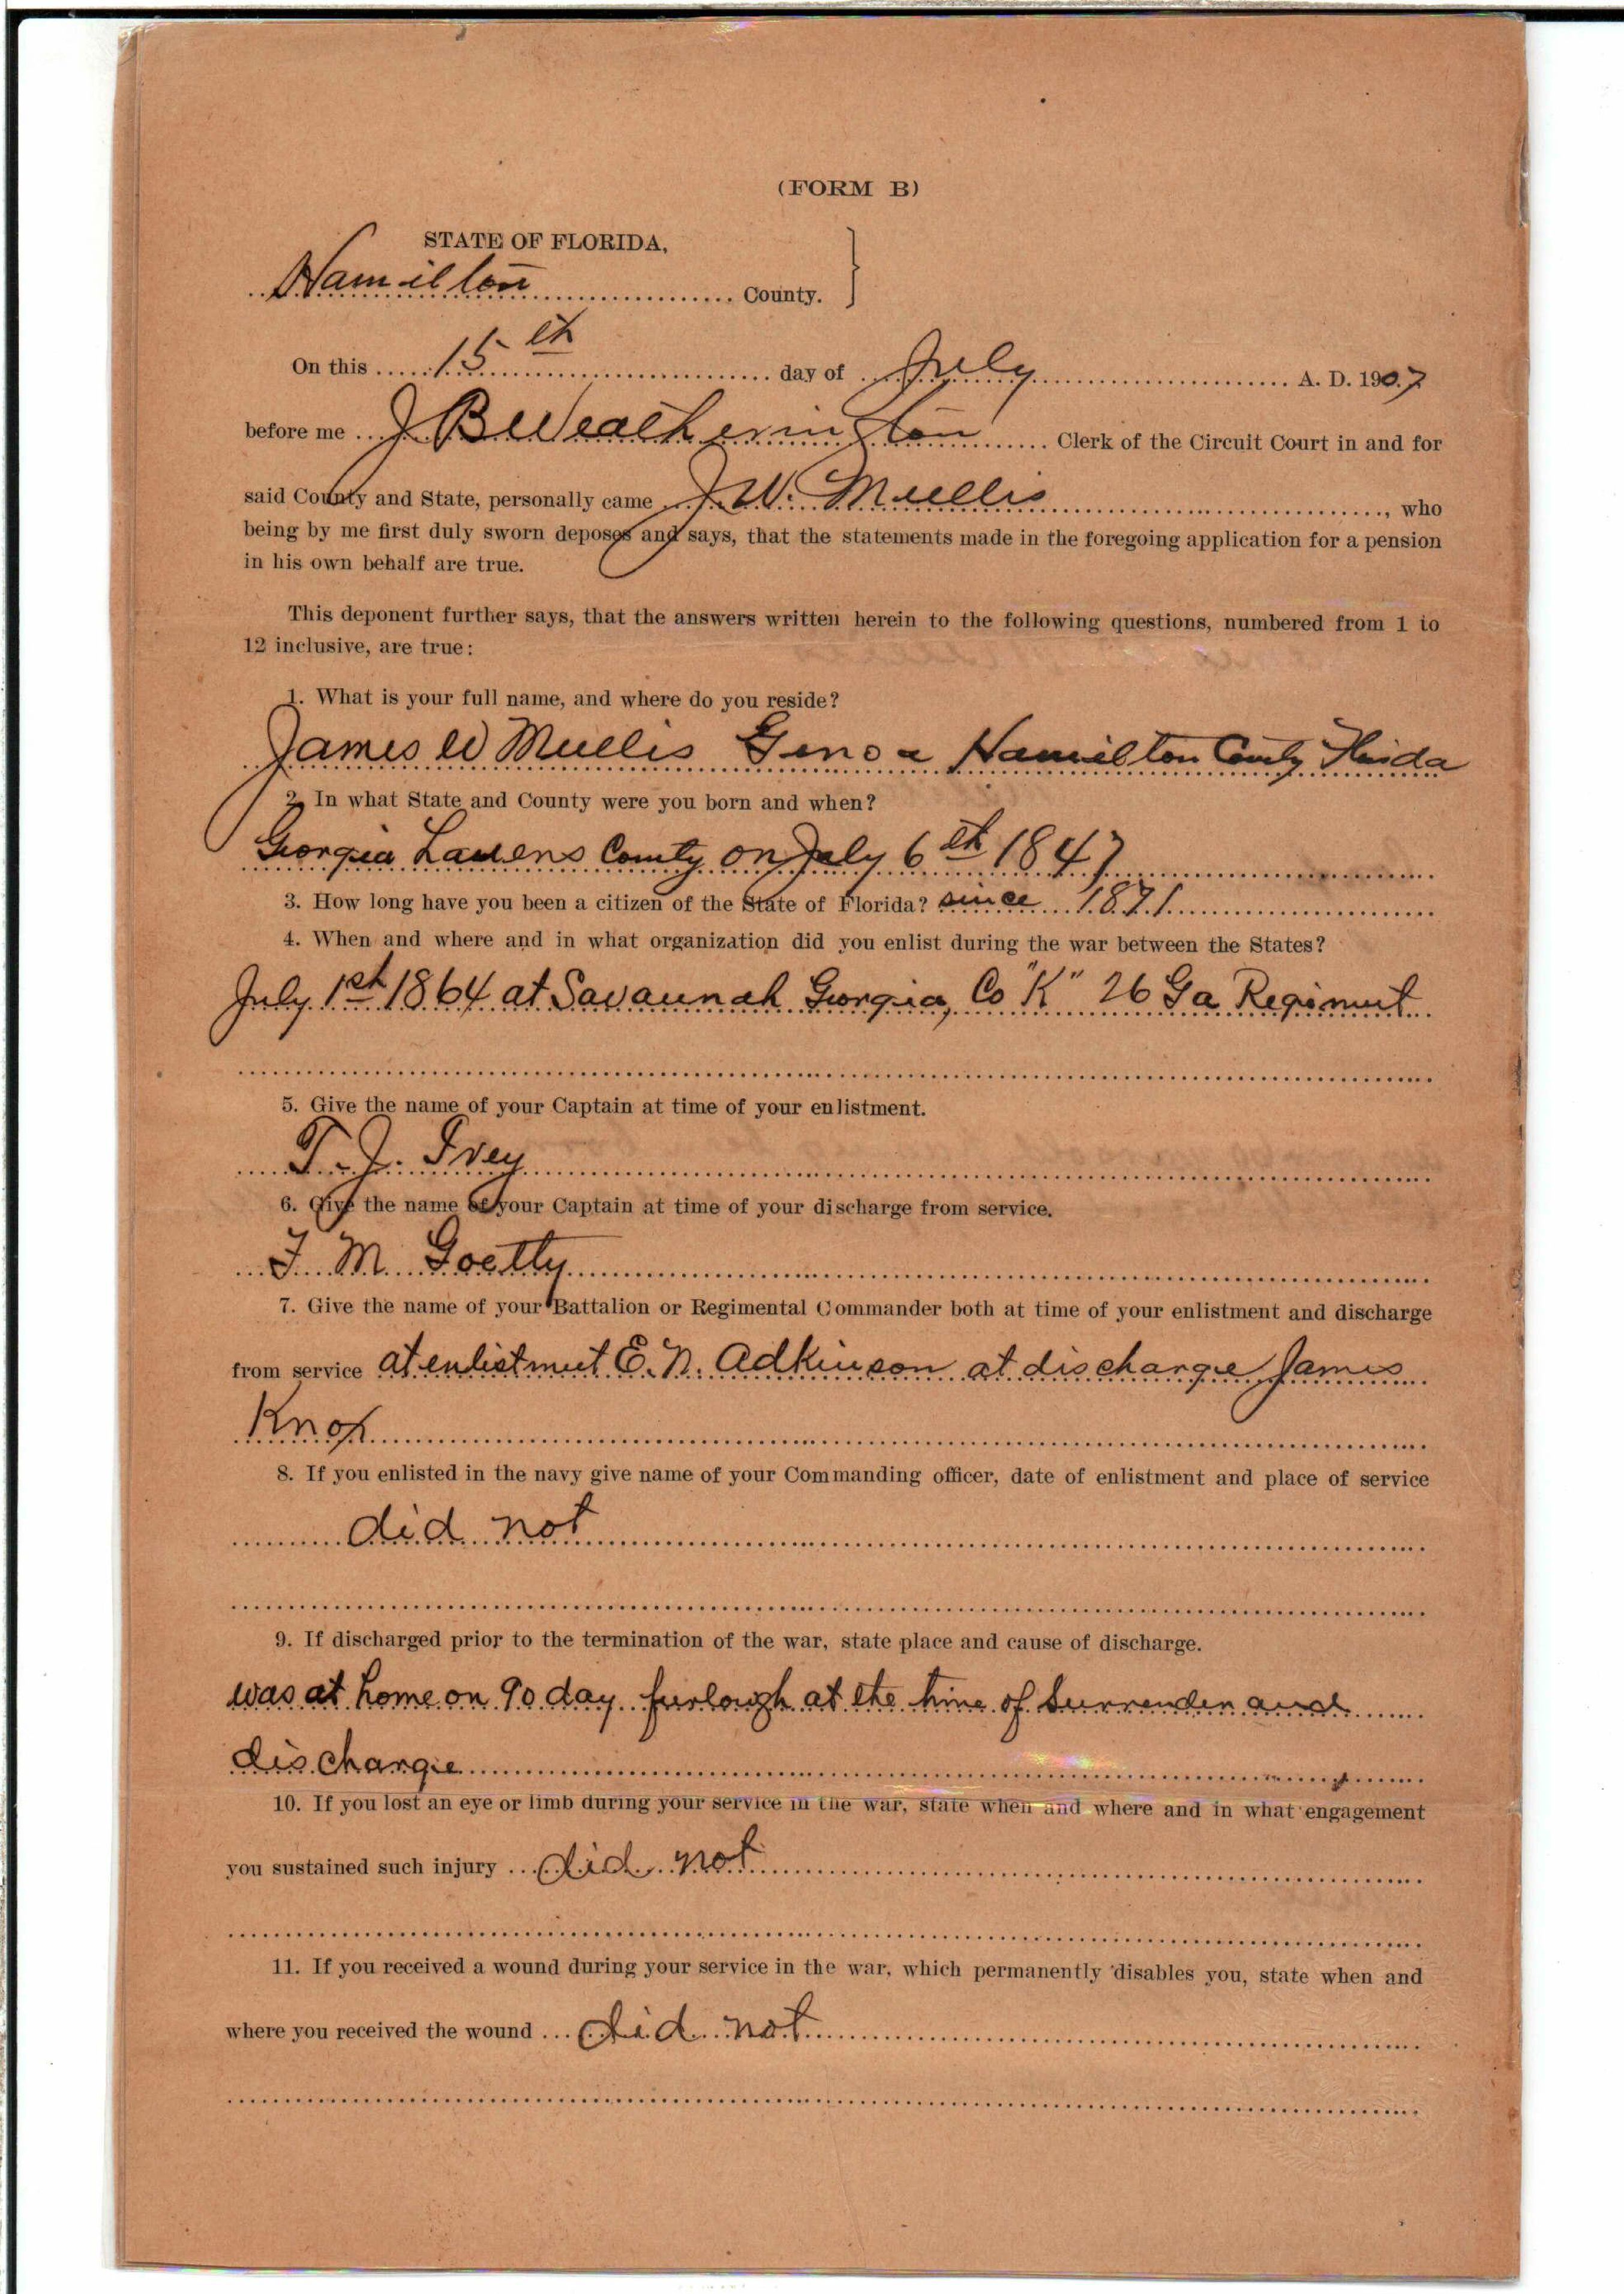 (FORM B)
STATE OF FLORIDA,
Hamilton County.
On this 15th day of July A. D. 1907
before me J B Weatherington Clerk of the Circuit Court in and for
said County and State, personally came J. W. Mullis, who
being by me first duly sworn deposes and says, that the statements made in the foregoing application for a pension
in his own behalf are true.
This deponent further says, that the answers written herein to the following questions, numbered from 1 to
12 inclusive, are true:
1. What is your full name, and where do you reside?
James W Mullis Genoa Hamilton County Florida
2. In what State and County were you born and when?
Georgia Laurens County on July 6th 1847
3. How long have you been a citizen of the State of Florida? since 1871
4. When and where and in what organization did you enlist during the war between the States?
July 1st 1864 at Savaunah Georgia, Co "K" 26 Ga Regiment
5. Give the name of your Captain at time of your enlistment.
T. J. Ivey
6. Give the name of your Captain at time of your discharge from service.
F. M. Goetty
7. Give the name of your Battalion or Regimental Commander both at time of your enlistment and discharge
from service at enlistment E. N. Adkinson at discharge James
Knox
8. If you enlisted in the navy give name of your Commanding officer, date of enlistment and place of service
did not
9. If discharged prior to the termination of the war, state place and cause of discharge.
was at home on 90 day furlough at the time of Surrender and
discharge
10. If you lost an eye or limb during your service in the war, state when and where and in what engagement
you sustained such injury did not
11. If you received a wound during your service in the war, which permanently disables you, state when and
where you received the wound did not